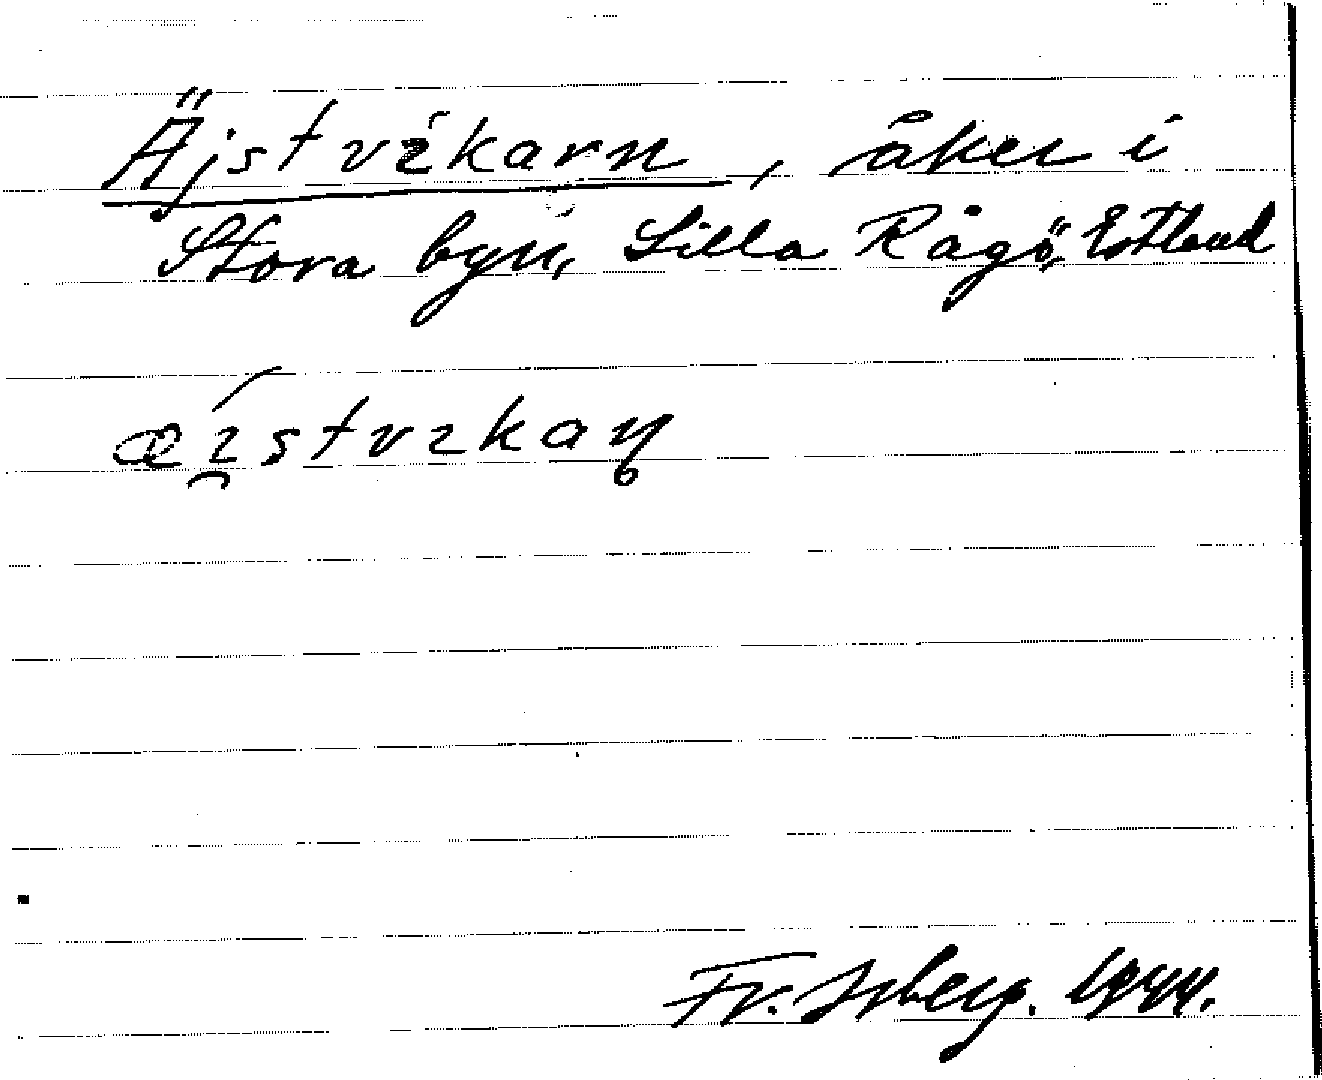 Äjstvikarn, åker i
Stora byn, Lilla Rågö, Estland
æistvikaņ
Fr. Isberg. 1944.